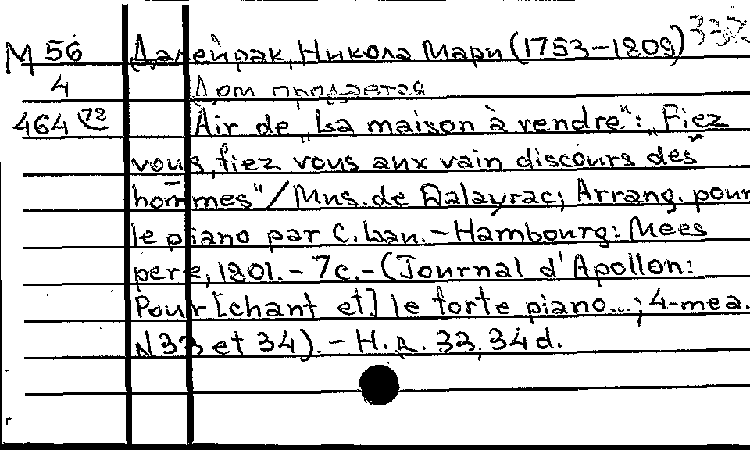 М 56 Далейрак, Никола Мари (1753-1809) 332
4 Дом продается
464 72 Air de „La maison à vendre“: „Fiez
vous, fiez vous aux vain discours des
hommes“/ Mus. de Dalayrac; Arrang. pour
le piano par C. Lau. - Hambourg: Mees
pere, 1801. - 7c. - (Journal d'Apollon:
Pour [chant et] le forte piano...; 4-mea.
N33 et 34). - Н.д. 33, 34 d.